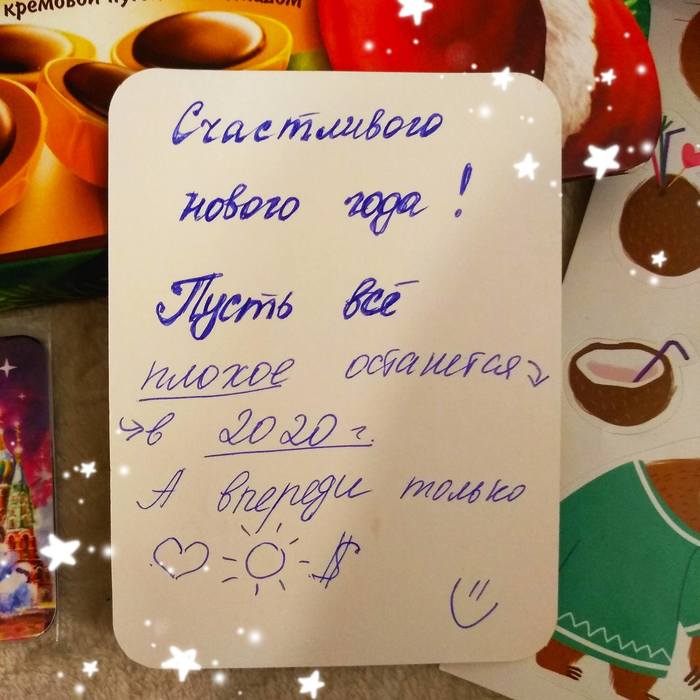 кремовой
Счастливого
нового года!
Пусть всё
плохое останется
в 2020 г.
А впереди только
$